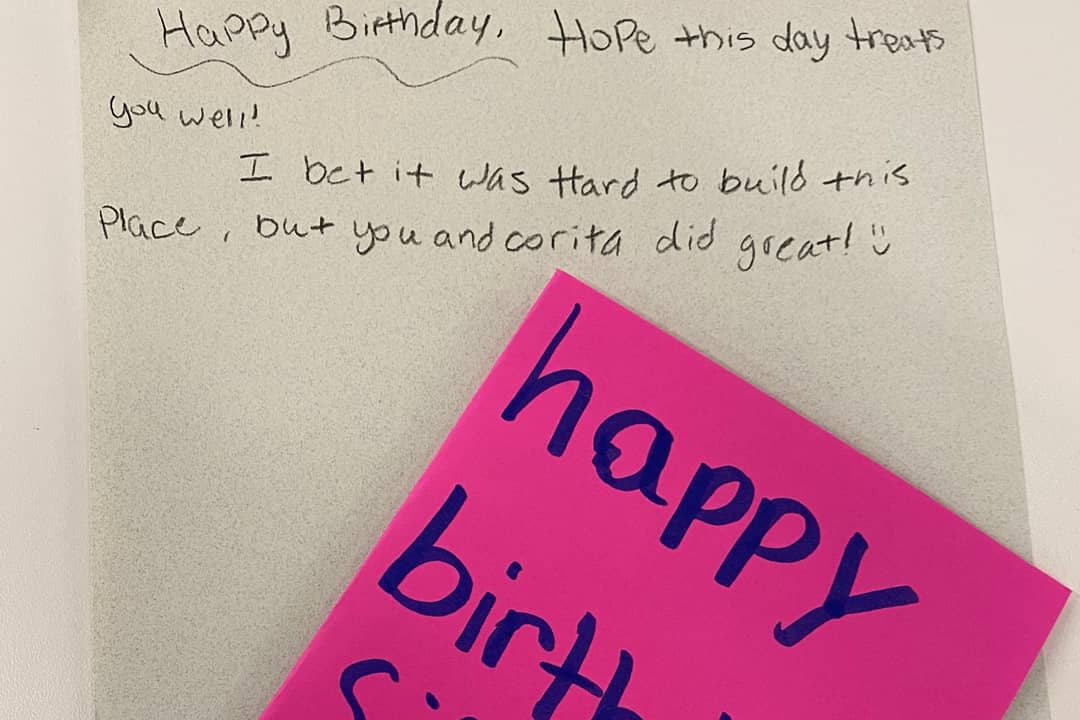 Happy Birthday, Hope this day treats
you well!
I bet it was Hard to build this
Place, but you and corita did great! :)
happy
birth
Si